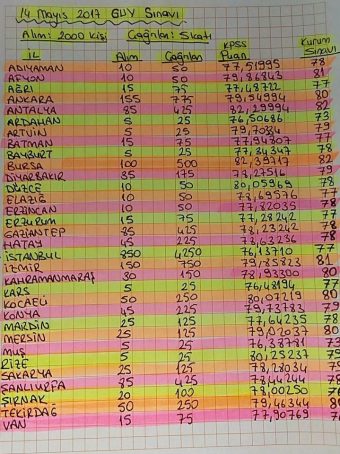 14 Mayıs 2017 GUY Sınavı
Alım: 2000 Kişi Çağrılan: 5katı
İL Alım Çağrılan KPSS Puan Kurum Sınavı
ADIYAMAN 10 50 77,51995 78
AFYON 10 50 79,86843 81
AĞRI 15 75 77,48722 77
ANKARA 155 775 79,94994 80
ANTALYA 85 425 82,29994 82
ARDAHAN 5 25 76,50686 73
ARTVİN 5 25 79,70334 79
BATMAN 15 75 77,94307 77
BAYBURT 5 25 77,34347 78
BURSA 100 500 82,39717 82
DİYARBAKIR 35 175 78,27516 79
DÜZCE 10 50 80,05969 78
ELAZIĞ 10 50 78,69576 77
ERZİNCAN 10 50 77,82035 78
ERZURUM 15 75 77,28242 77
GAZİANTEP 85 425 78,23242 78
HATAY 45 225 78,63236 78
İSTANBUL 850 4250 76,13710 77
İZMİR 150 750 79,85823 81
KAHRAMANMARAŞ 30 150 78,93300 80
KARS 5 25 76,48194 77
KOCAELİ 50 250 80,07219 80
KONYA 45 225 79,73783 79
MARDİN 25 125 77,64235 78
MERSİN 25 125 79,02037 80
MUŞ 5 25 76,38781 73
RİZE 5 25 80,25237 79
SAKARYA 25 125 78,28034 79
ŞANLIURFA 85 425 78,44244 78
ŞIRNAK 20 100 78,00250
TEKİRDAĞ 50 250 79,46344 81
VAN 15 75 77,90769